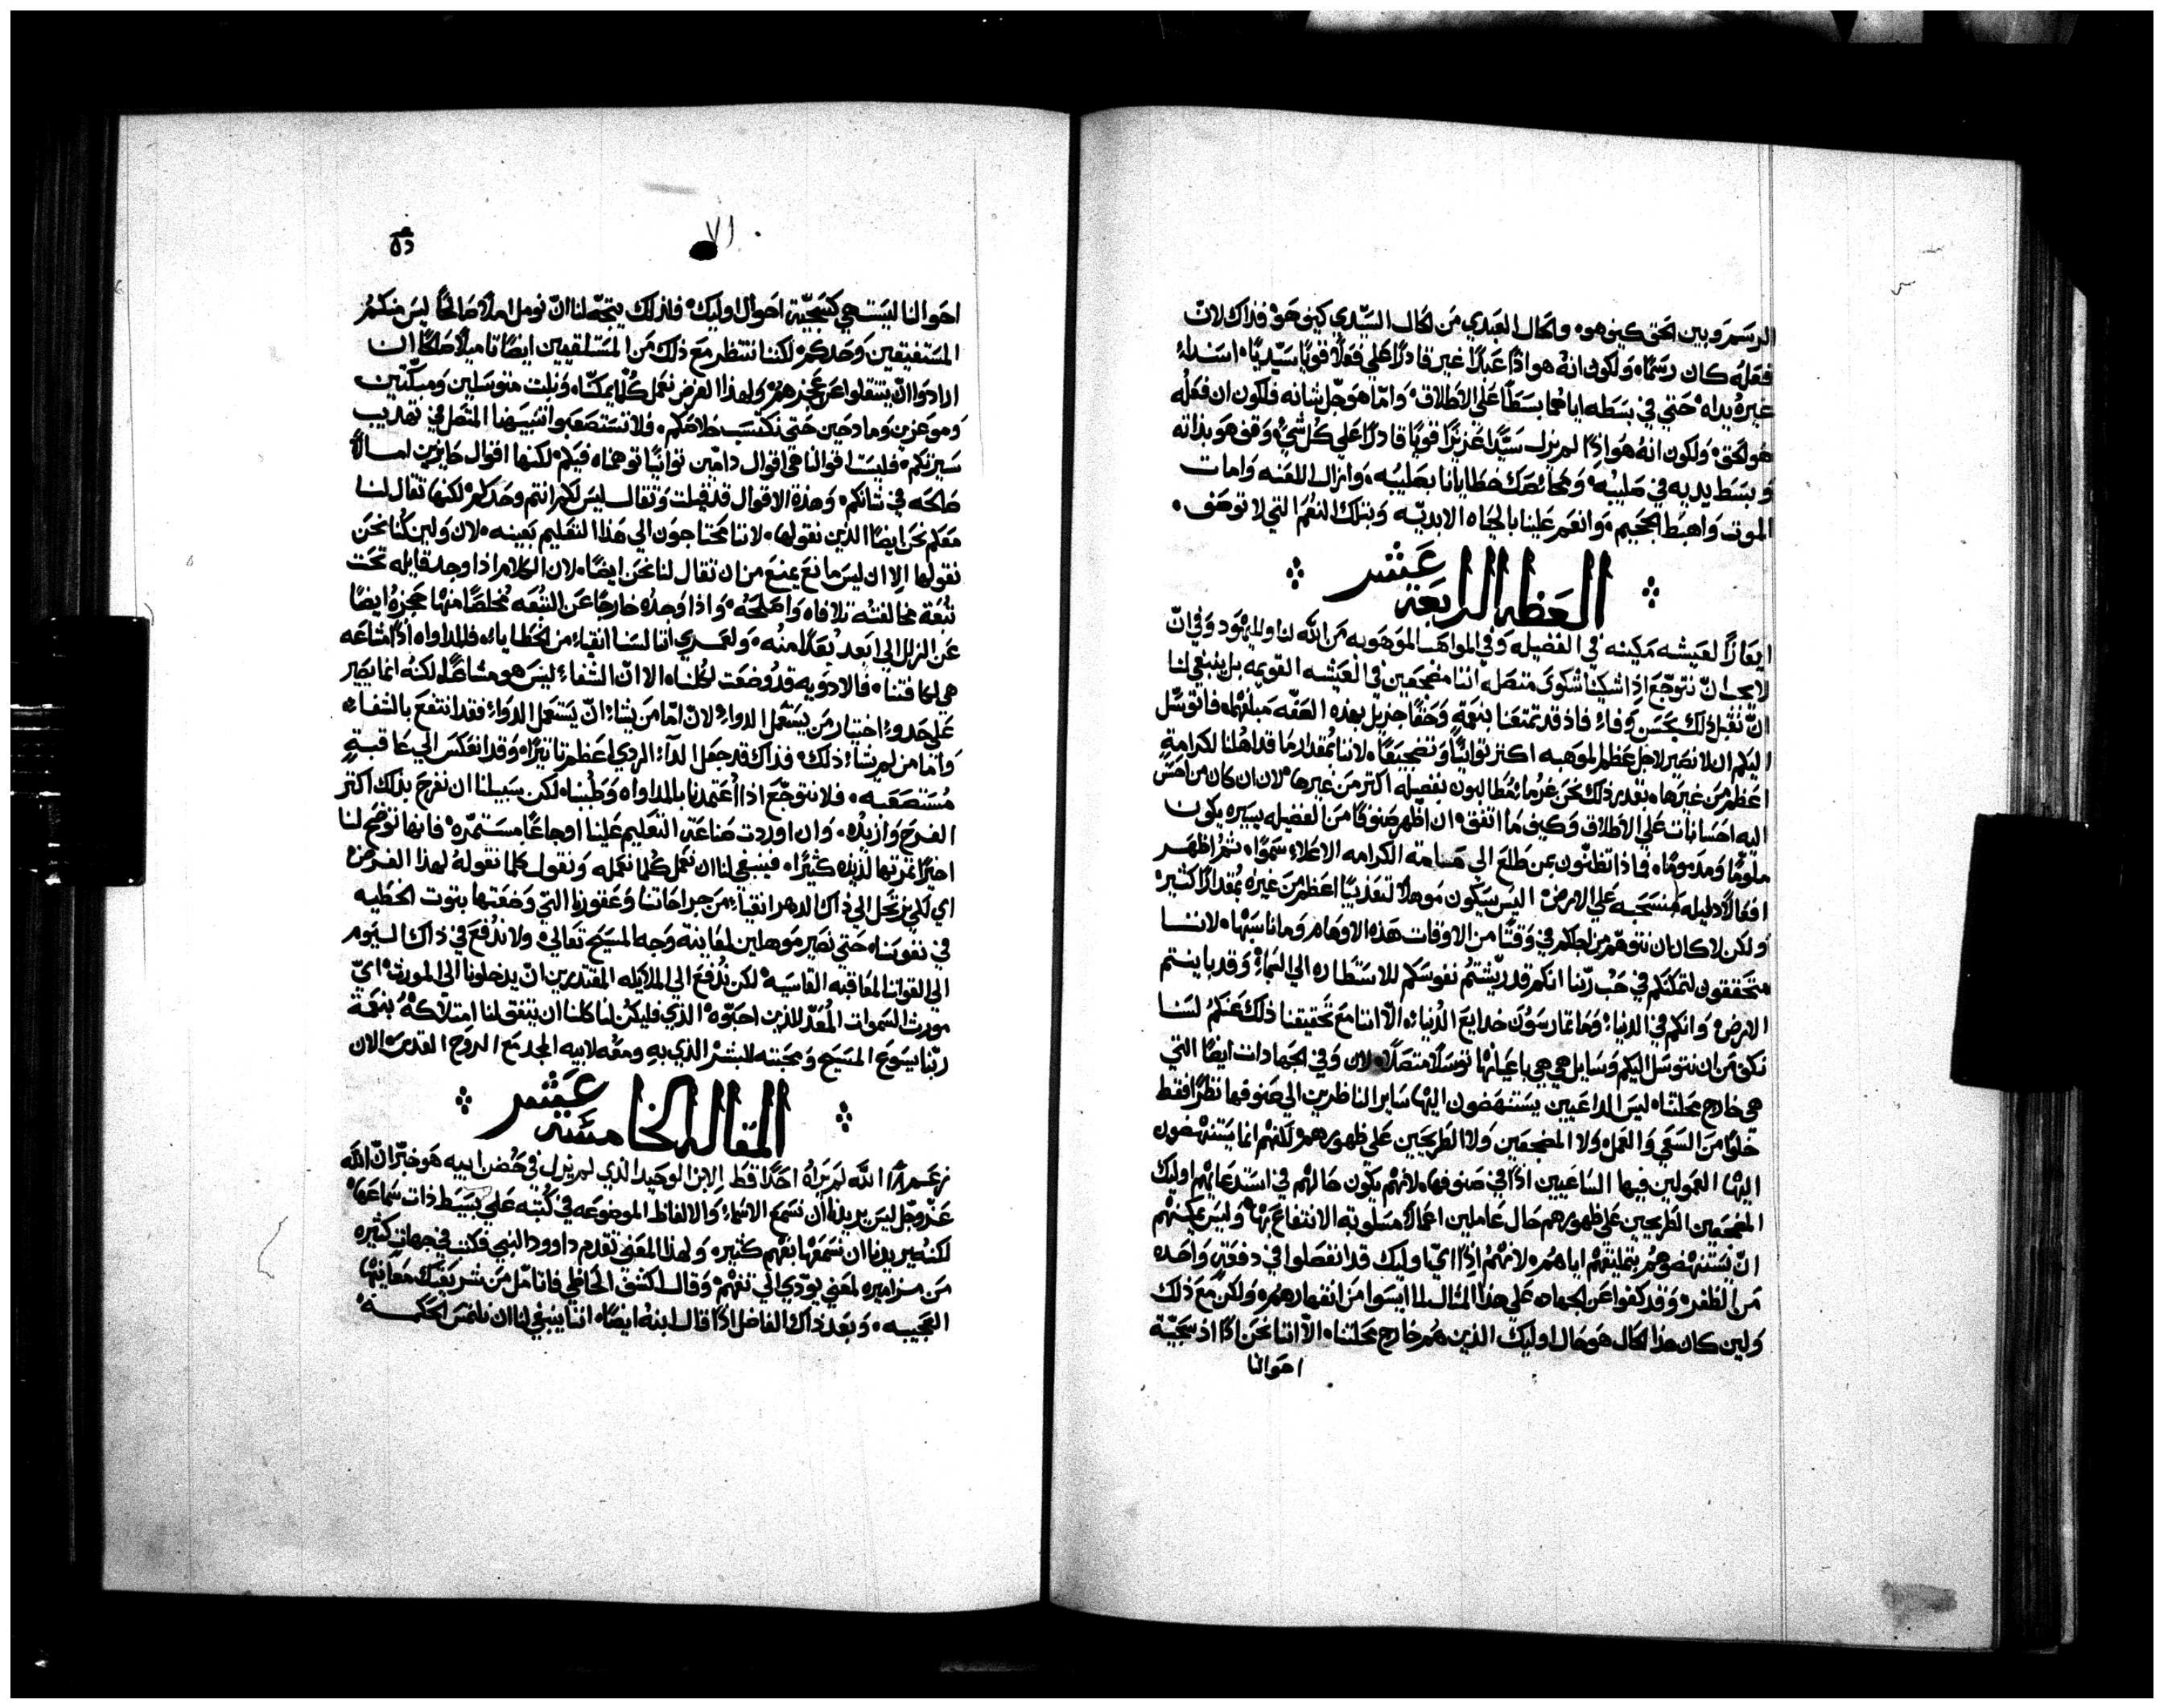 الرسم وبين الحق كيف هو، والحال العبدي من الحال السيدي كيف هو، فذاك لان
فعله كان رسمًا، ولكون انه هو اذًا عبدًا غير قادرًا علي فعلًا قويًا سيّديًا، اسندله
غيره يداه حتي في بسطه اياهما بسطًا علي الاطلاق، واما هو جل شانه فلكون ان فعله
هو الحق، ولكون انه هو اذًا لم يزل سيدًا عزيزًا قويًا قادرًا علي كل شي، وقف هو بذاته
وبسط يديه في صليبه، ومحا صك خطايانا بصليبه، وازال اللعنه وامات
الموت واهبط الجحيم، وانعم علينا بالحياه الابديه وبتلك النعم التي لا توصف،
العظه الرابعة عشر
ايعازًا لعيشه مكينه في الفضيله وفي المواهب الموهوبه من الله لنا ولليهود وفي ان
لا يجب ان نتوجع اذا شكينا شكوي متصله اننا مضجعين في العيشه القويمه بل ينبغي لنا
ان نقبل ذلك بحسن وفاء، فاذ قد تمتعنا بنعمةٍ وحقًا جزيل بهذه الصفه مبلغها، فاتوسل
اليكم ان لا نصير لاجل عظم الموهبه اكثر توانيًا وتضجيعًا، لاننا بمقدار ما قد اهلنا لكرامةٍ
اعظم من غيرها، بقدر ذلك نحن غرما مطالبون بفضيله اكثر من غيرها، لان ان كان من احسن
اليه احسانات علي الاطلاق وكيف ما اتفق، ان اظهر صنوفًا من الفضيله يسيره يكون
ملومًا ومذمومًا، فماذا تظنون بمن طلع الي هامة الكرامه الاعلاء سموًا، ثم اظهر
افعالًا ذليله منسحبه علي الارض، اليس سيكون موهلًا لتعذيبًا اعظم من غيره بمقدارًا كثير
ولكن لا كان ان نتوهم من اجلكم في وقتًا من الاوقات هذه الاوهام وما ناسبها، لاننا
متحققون لتمكنكم في حب ربنا انكم قد ريشتم نفوسكم للاستطاره الي السماء، وقد باينتم
الارض، وانكم في الدنيا، وما تمارسون خدايع الدنيا، الا اننا مع تحقيقنا ذلك عنكم لسنا
نكف من ان نتوسل اليكم وسايل هي هي باعيانها توسلًا متصلًا، لان وفي الجهادات ايضًا التي
هي خارج محلتنا، ليس الداعيين يستنهضون اليها ساير الناظرين الي صنوفها نظرًا فقط
خلوًا من السعي والعمل، ولا المضجعين ولا الطريحين علي ظهورهم، لكنهم انما يستنهضون
اليها العمولين فيها الساعيين اذًا في صنوفها، لانهم يكون حالهم في استدعايهم اوليك
المضجعين الطريحين علي ظهورهم حال عاملين اعمالًا مسلوبه الانتفاع بها، وليس يمكنهم
ان يستنهضوهم بتمليقهم اياهم، لانهم اذًا اي اوليك قد انفصلوا في دفعةٍ واحده
من الظفر، وقد كفوا عن الجهاد، علي هذا المثال لما ايسوا من انقهارهم، ولكن مع ذلك
ولين كان هذا الحال هو حال اوليك الذين هم خارج محلتنا، الا اننا نحن اذًا اذ سجية
احوالنا
احوالنا ليست هي كسجية احوال اوليك، فلذلك يتجه لنا ان نومل املًا صالحًا ليس منكم
المستفيقين وحدكم، ولكننا ننتظر مع ذلك من المستلقيين ايضًا تاميلًا صالحًا ان
ارادوا ان ينتقلوا عن عجزهم، ولهذا الغرض نعمل كلما يمكننا، ونلبث متوسلين ومبكتين
وموعزين ومادحين حتي نكتسب خلاصكم، فلا تستصعبوا تنبيهنا المتصل في تهذيب
سيرتكم، فليست اقوالنا هي اقوال ذامين توانيًا توهمناه فيكم، لكنها اقوال حايزين امالًا
صالحه في شانكم، وهذه الاقوال قد قيلت وتقال ليس لكم انتم وحدكم، لكنها تقال لنا
معكم نحن ايضًا الذين نقولها، لاننا محتاجون الي هذا التعليم بعينه، لان ولين كنا نحن
نقولها الا ان ليس مانع يمنع من ان تقال لنا نحن ايضًا، لان الكلام اذا وجد قايله تحت
تبعة مخالفته تلافاه واصلحه، واذا وجده خارجًا عن التبعه مخلصًا منها حجزه ايضًا
عن الزلل الي ابعد بعدًا منه، ولعمري اننا لسنا انقياء من الخطايا، فالمداواه اذًا مشاعه
هي لكافتنا، فالادويه قد وضعت لكلنا، الا ان الشفاء ليس هو مشاعًا، لكنه انما يصير
علي حدو اختيار من يستعمل الدواء، لان اما من يشاء ان يستعمل الدواء فقد انتفع بالشفاء
واما من لم يشاء ذلك، فذاك قد جعل الداء الردي اعظم تاثيرًا، وقد انعكس الي عاقبةٍ
مستصعبه، فلا نتوجع اذا اعتمدنا بالمداواه وطبنا، لكن سبيلنا ان نفرح بذلك اكثر
الفرح وازيده، وان اوردت صناعة التعليم علينا اوجاعًا مستمره، فانها توضح لنا
اخيرًا ثمرتها لذيذه كثيرًا، فينبغي لنا ان نعمل كلما نعمله ونقول كلما نقوله لهذا الغرض
اي لكي نرتحل الي ذاك الدهر انقياء من جراحاتنا وعقورنا التي وضعتها بثوث الخطيه
في نفوسنا، حتي نصير موهلين لمعاينة وجه المسيح تعالي، ولا ندفع في ذاك اليوم
الي القوات المعاقبه القاسيه، لكن ندفع الي الملايكه المقتدرين ان يدخلونا الي المورث، اي
مورث السموات المعد للذين احبوه، الذي فليكن لنا كلنا ان يتفق لنا امتلاكه بنعمة
ربنا يسوع المسيح ومحبته للبشر الذي به ومعه لابيه المجد مع الروح القدس، الان
المقاله الخامسة عشر
زعم ان الله لم يراه احدًا قط الابن الوحيد الذي لم يزل في حضن ابيه هو خبّر ان الله
عز وجل ليس يريدنا ان نسمع الاسماء والالفاظ الموضوعه في كتبه علي بسيط ذات سماعها
لكنه يريدنا ان نسمعها بفهم كثير، ولهذا المعني تقدم داوود النبي فكتب في جهات كثيره
من مزاميره لمعني يودي الي تفهم، وقال اكشف الحاظي فاتامل من شريعتك معانيها
العجيبه، وبعد ذاك الفاضل اذًا قال ابنه ايضًا، اننا ينبغي لنا ان نلتمس الحكمه